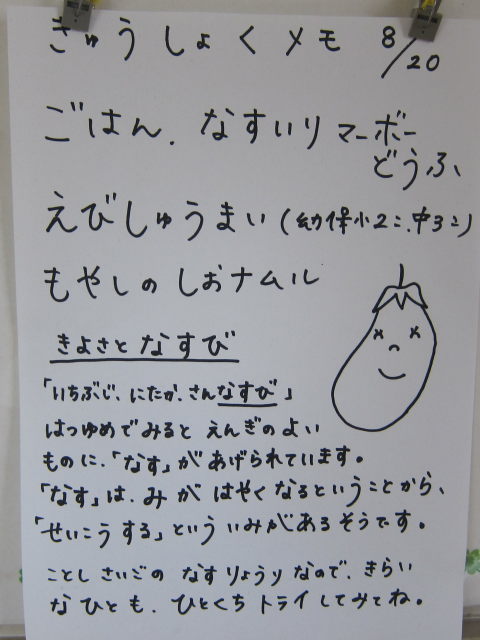 きゅうしょくメモ 8/20
ごはん、なすいりマーボー
どうふ、
えびしゅうまい(幼保小2こ、中3こ)
もやしのしおナムル
きよさとなすび
「いちふじ、にたか、さんなすび」
はつゆめでみるとえんぎのよい
ものに、「なす」があげられています。
「なす」は、みがはやくなるということから、
「せいこうする」といういみがあるそうです。
ことしさいごのなすりょうりなので、きらい
なひとも、ひとくちトライしてみてね。